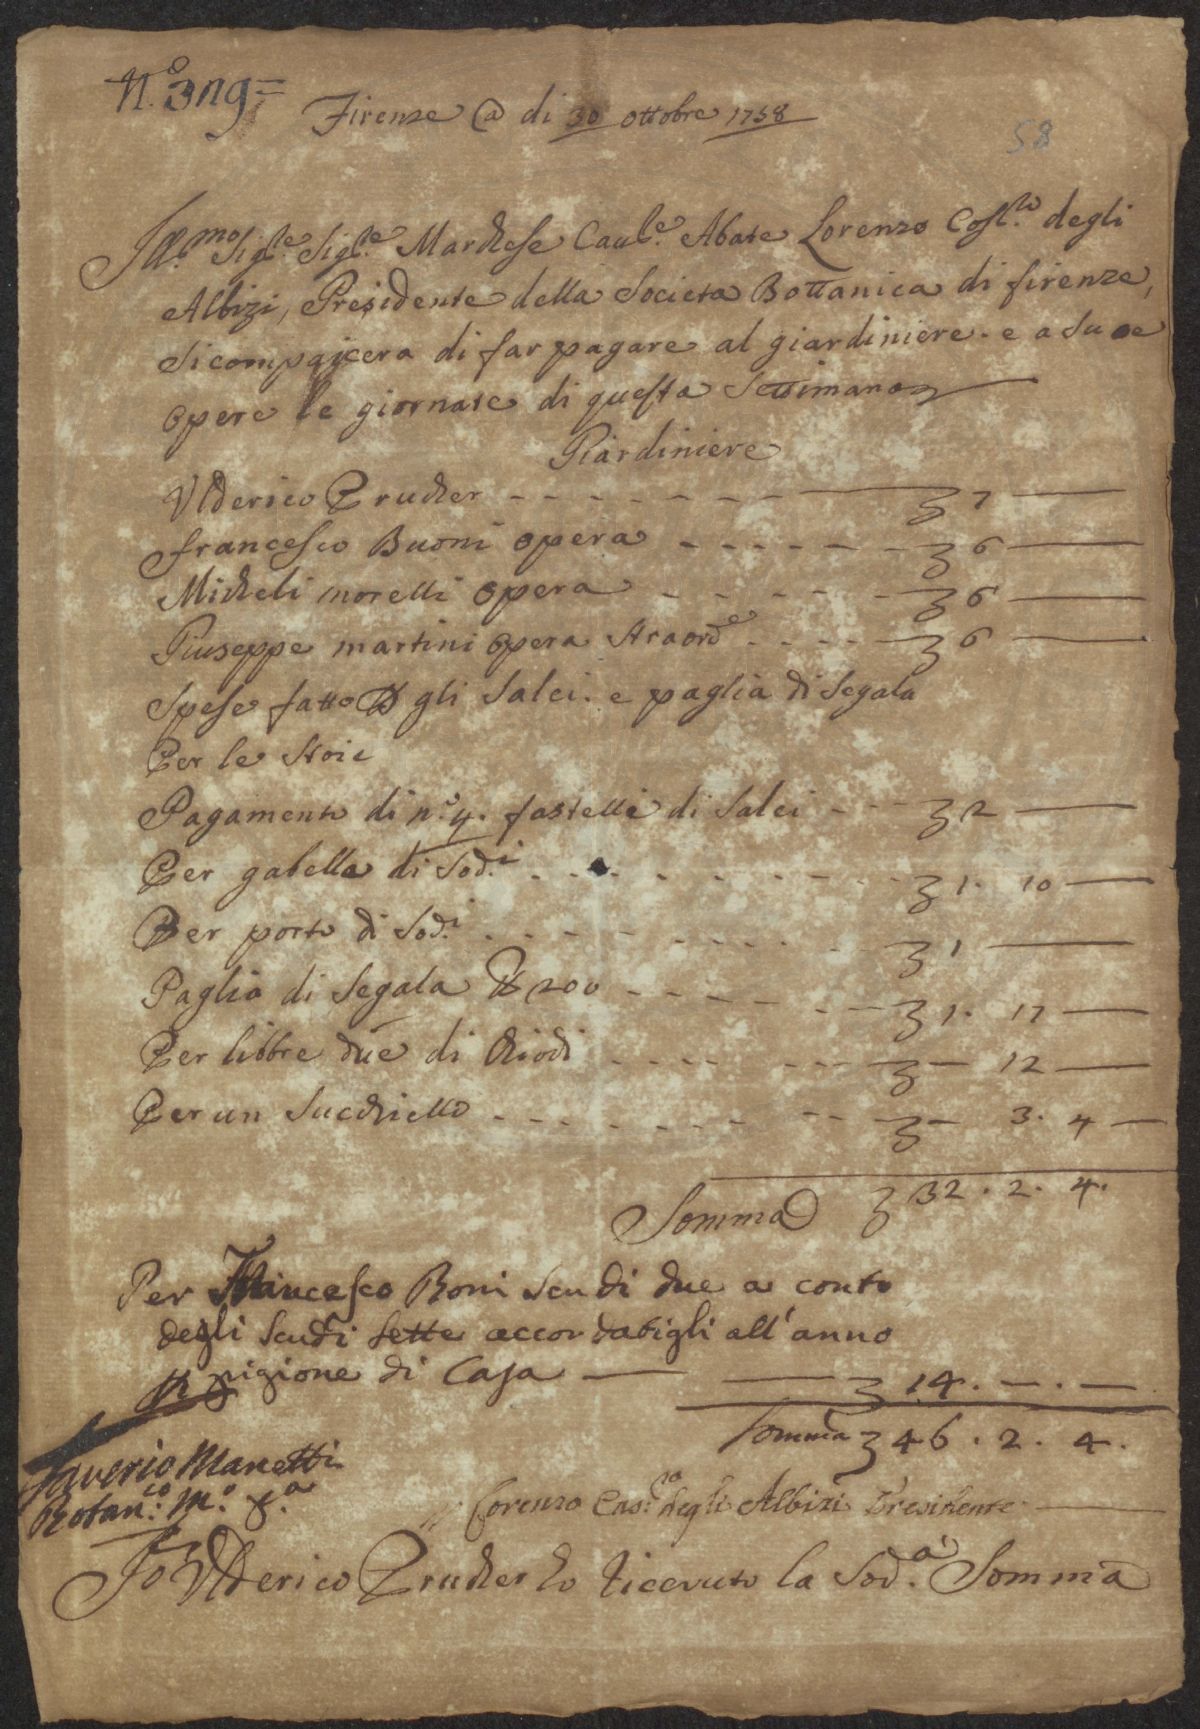 N.º 319=
Firenze @ di 30 ottobre 1758
58
Ill.mo Sig.re Sig.re Marchese Caul.e Abate Lorenzo Cost.to degli
Albizi, Presidente della Società Bottanica di firenze,
si compiacera di far pagare al giardiniere. e a su oe
opere le giornate di questa Settimana
Giardiniere
Vlderico Prucher - - - - - - - 7 —
francesco Buoni opera - - - - - 6 —
Micheli morelli opera - - - - - 6 —
Giuseppe martini opera straord.e - - - - 6 —
spese fatto p gli salci. e paglia di segala
Per le stoie
Pagamento di n.º 4. fastelli di salci - - - 2 —
Per gabella di sod.i - - - - - - - 1. 10 —
Per porto di sod.i - - - - - - - 1 —
Paglia di segala 200 - - - - - - 1. 17 —
Per libbre due di chiodi - - - - - — 12 —
Per un succhiello - - - - - - - — 3. 4 —
Somma 32. 2. 4.
Per Francesco Boni scudi due a conto
degli scudi sette accordatigli all'anno
p pigione di Casa — — 14. —. —
Somma 46. 2. 4.
Saverio Manetti
Botan.co M.º S.a
Lorenzo Cas.to degli Albizi Presidente —
Io Vlderico Prucher ho ricevuto la sod.a Somma